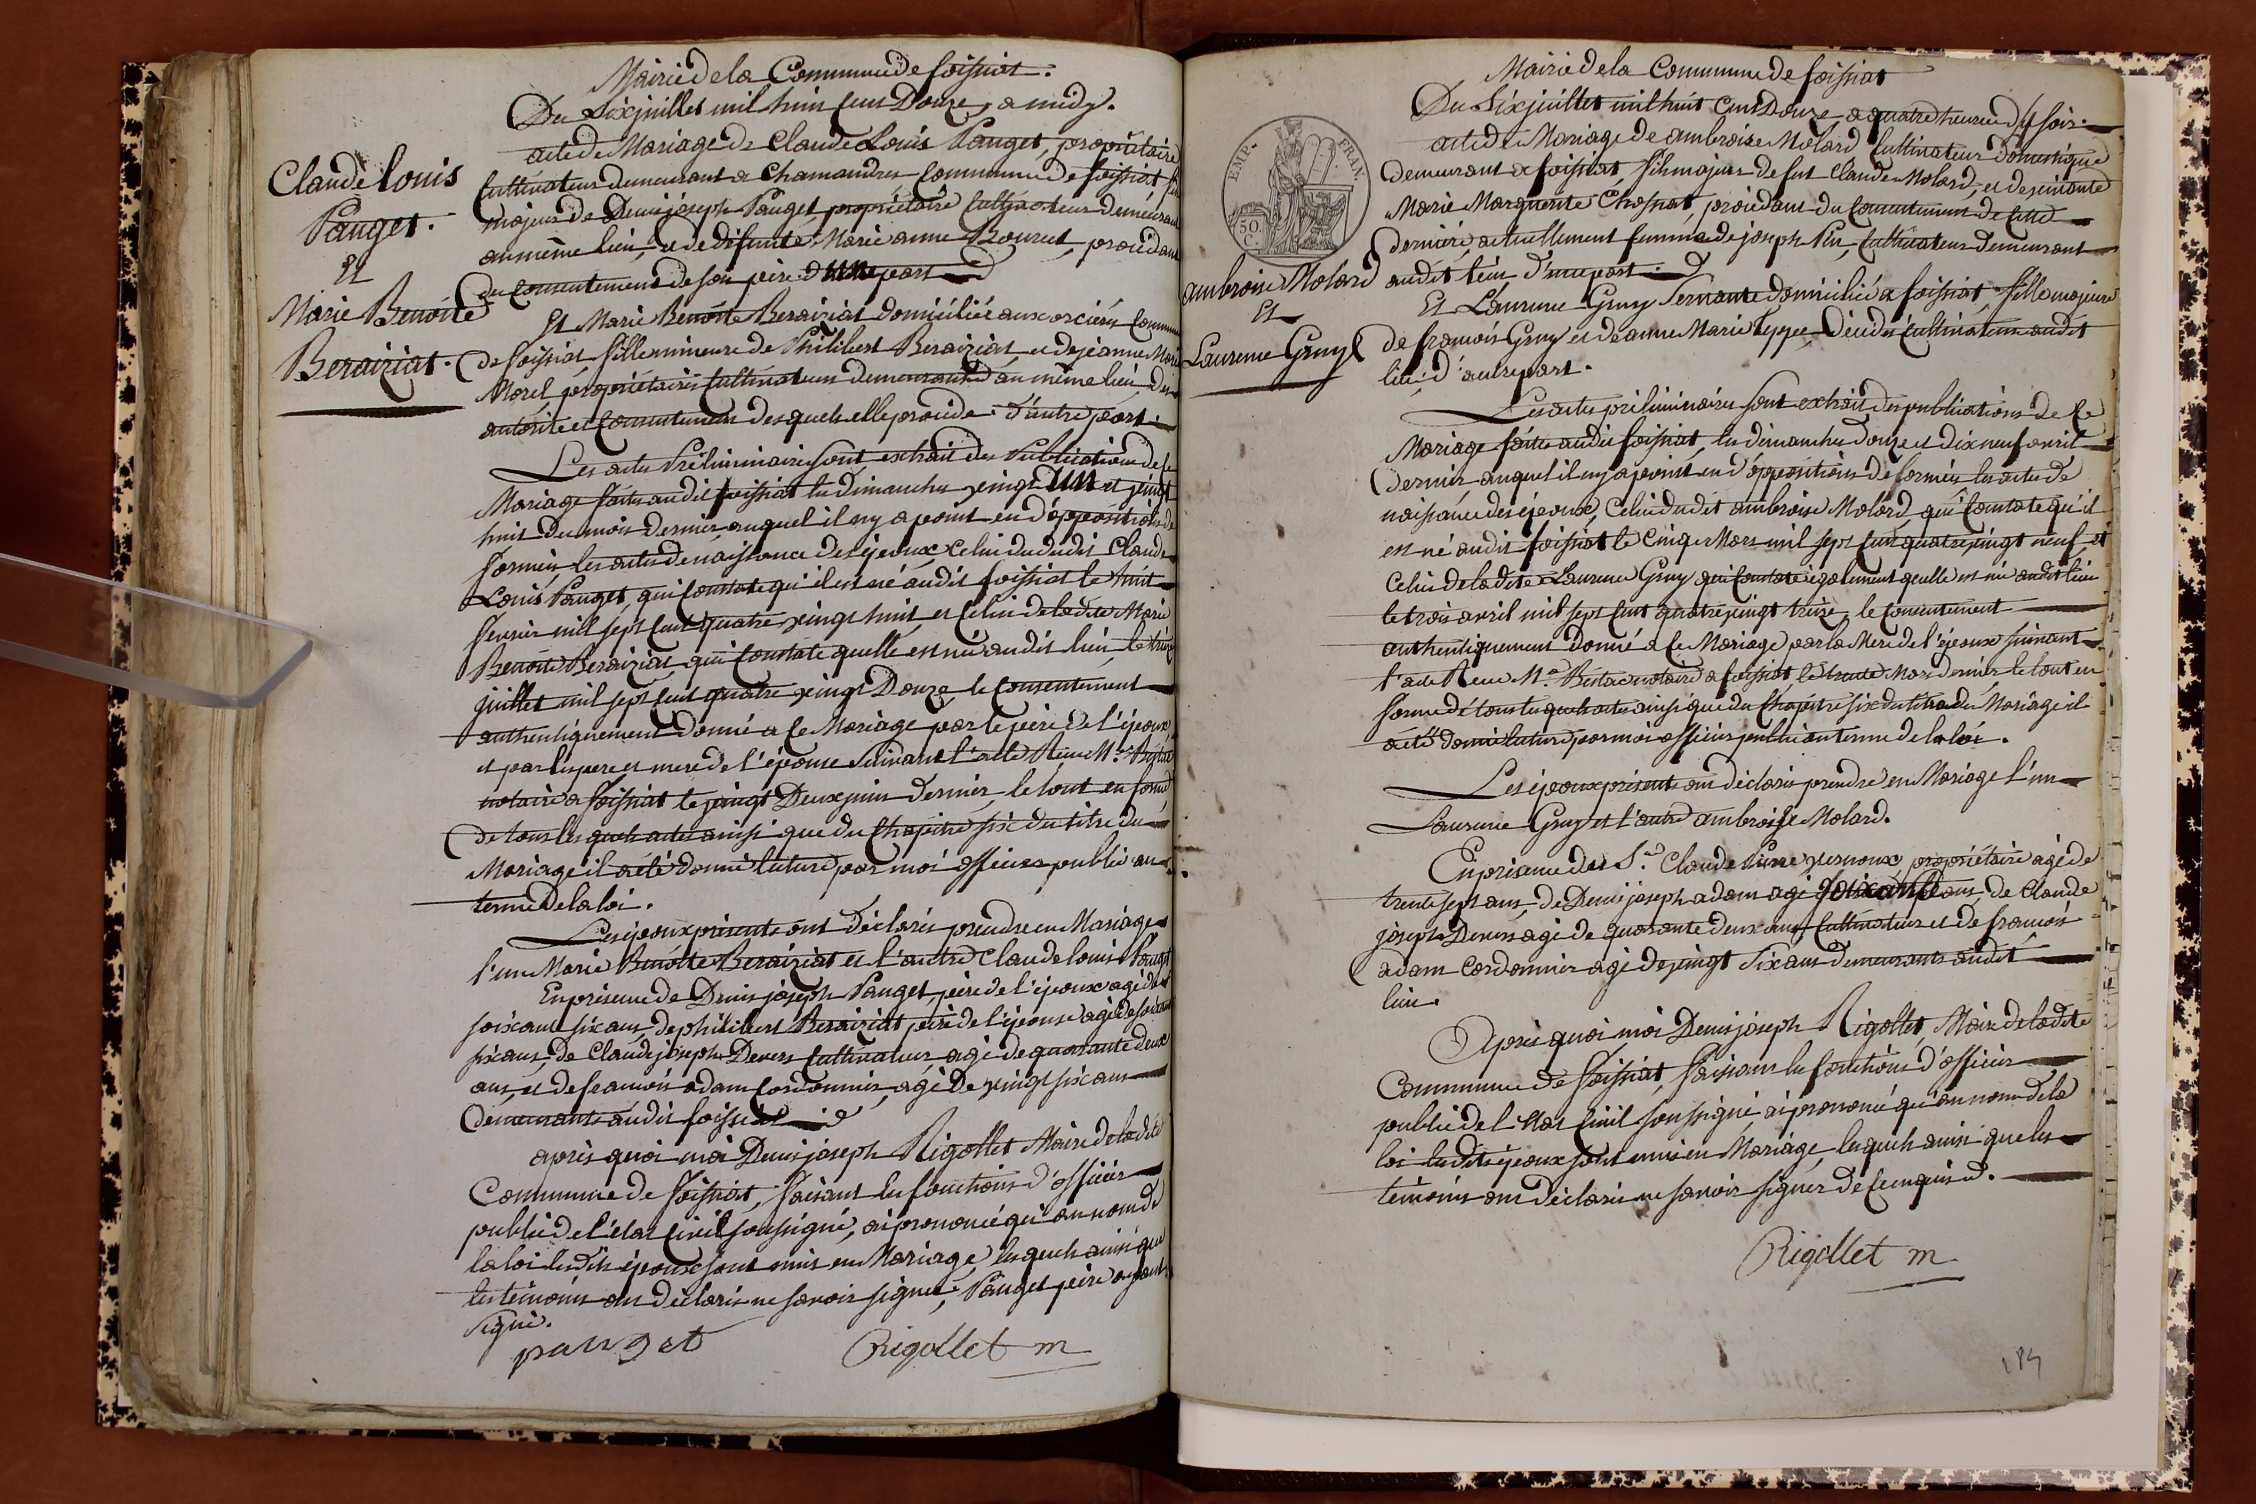 Mairie de la Commune de foissiat.
Du Six juillet mil huit cent Douze, a midy.
acte de Mariage de Claude Louis Pauget, propriétaire
Cultivateur demeurant a Chamandres Commune de foissiat fils
majeur de Denis joseph Pauget propriétaire Cultivateur demeurant
au même lieu, et de défunte Marie anne Bouret, procédant
du Consentement de son père d'une part
Claude Louis
Pauget.
Et
Marie Benoîte
Beraiziat.
Et Marie Benoîte Beraiziat domiciliée aux orciers Commune
de foissiat fille mineure de Philibert Beraiziat et de jeanne Marie
Morel propriétaires Cultivateurs demeurants au même lieu, de
autorité et Consentement desquels elle procède d'autre part.
Les actes Préliminaires sont extrait des Publications de ce
Mariage faites audit foissiat les dimanches vingt un et vingt
huit du mois dernier auquel il ny a point eu d'oppositions de
formées les actes de naissance des époux, Celui dududit Claude
Louis Pauget, qui Constate qu'il est né audit foissiat le huit
fevrier mil sept cent quatre vingt huit, et Celui de ladite Marie
Benoîte Beraiziat, qui Constate quelle est née audit lieu, le treize
juillet mil sept cent quatre vingt Douze, le Consentement
authentiquement donné a ce Mariage par le père de l'époux,
et par les pere et mere de l'épouse Suivant l'acte Reçu Me.
notaire a foissiat le vingt Deux juin dernier, le tout en forme
de tous lesquels actes ainsi que du Chapitre six du titre du
Mariage il a été donné lecture par moi officier public au
terme de la loi.
Les époux présents ont Déclarés prendre en Mariage
l'un Marie Benoîte Beraiziat et l'autre Claude louis Pauget
En présence de Denis joseph Pauget, père de l'époux agé de
soixante six ans, de philibert Beraiziat père de l'épouse agé de soixante
six ans, de Claude joseph Devers Cultivateur agé de quarante deux
ans, et de francois adam Cordonnier, agé De vingt six ans
demeurants audit foissiat
après quoi moi Denis joseph Rigollet Maire de ladite
Commune de foissiat, faisant les fonctions d'officier
public de l'état Civil soussigné, ai prononcé qu'au nom de
la loi lesdits époux sont unis en Mariage, lesquels ainsi que
les témoins ont déclarés ne savoir signer, Pauget père ayant
signé.
pauget Rigollet m
Mairie de la Commune de foissiat
Du Six juillet mil huit Cent Douze a quatre heures du soir.
acte de Mariage de ambroise Molard Cultivateur domestique
demeurant a foissiat, fils majeur de fut Claude Molard, et de vivante
Marie Marguerite Chossat, procédant du Consentement de Cette
dernière, actuellement femme de joseph Piu, Cultivateur demeurant
audit lieu d'une part.
EMP. FRAN.
50. C.
ambroise Molard
Et
Laurence Gruy
Et Laurence Gruy Servante domiciliée a foissiat, fille majeure
de francois Gruy et de anne Marie Teppe, Decédés Cultivateurs audit
lieu, d'autre part.
Les actes préliminaires sont extrait des publications de Ce
Mariage faites audit foissiat, les dimanches Douze et dix neuf avril
dernier auquel il ny a point eu d'oppositions de formées les actes de
naissance des époux, Celui dudit ambroise Molard, qui Constate qu'il
est né audit foissiat le Cinq Mars mil sept Cent quatre vingt neuf, et
Celui de ladite Laurence Gruy qui Constate également quelle est née audit lieu
le trois avril mil sept cent quatre vingt treize, le Consentement
authentiquement Donné a Ce Mariage par la Mere de l'époux suivant
l'acte Reçu Me. notaire a foissiat le trente Mars dernier le tout en
forme de tous lesquels actes ainsi que du Chapitre six du titre du Mariage il
a été donné lecture par moi officier public au terme de la loi.
Les époux présents ont déclarés prendre en Mariage l'un
Laurence Gruy et l'autre ambroise Molard.
En présence des Sr. Claude Vernoux propriétaire agé de
trente sept ans, de Denis joseph adam agé soixante ans, de Claude
joseph Devers agé de quarante deux ans Cultivateurs et de francois
adam Cordonnier agé de vingt Six ans demeurants audit
lieu.
Après quoi moi Denis joseph Rigollet, Maire de ladite
Commune de foissiat, faisant les fonctions d'officier
public de l'état Civil soussigné, ai prononcé qu'au nom de la
loi lesdits époux sont unis en Mariage, lesquels ainsi que les
témoins ont déclarés ne savoir signer de ce enquis.
Rigollet m